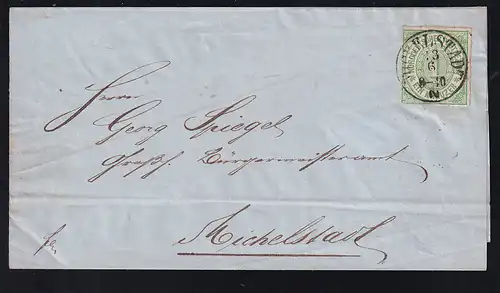 STADT
3
6
8-10
N
Herrn
Georg Spiegel
Großh. Bürgermeisteramt
Michelstadt